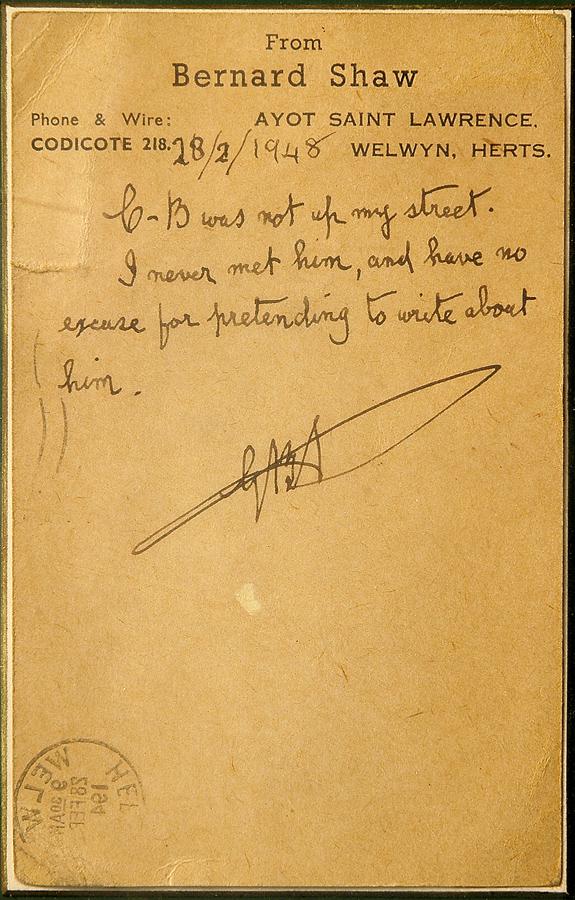 From
Bernard Shaw
Phone & Wire: AYOT SAINT LAWRENCE,
CODICOTE 218. 28/2/1948 WELWYN, HERTS.
C-B was not up my street.
I never met him, and have no
excuse for pretending to write about
him.
GBS
WELW HE
9 30AM
28 FEB
194